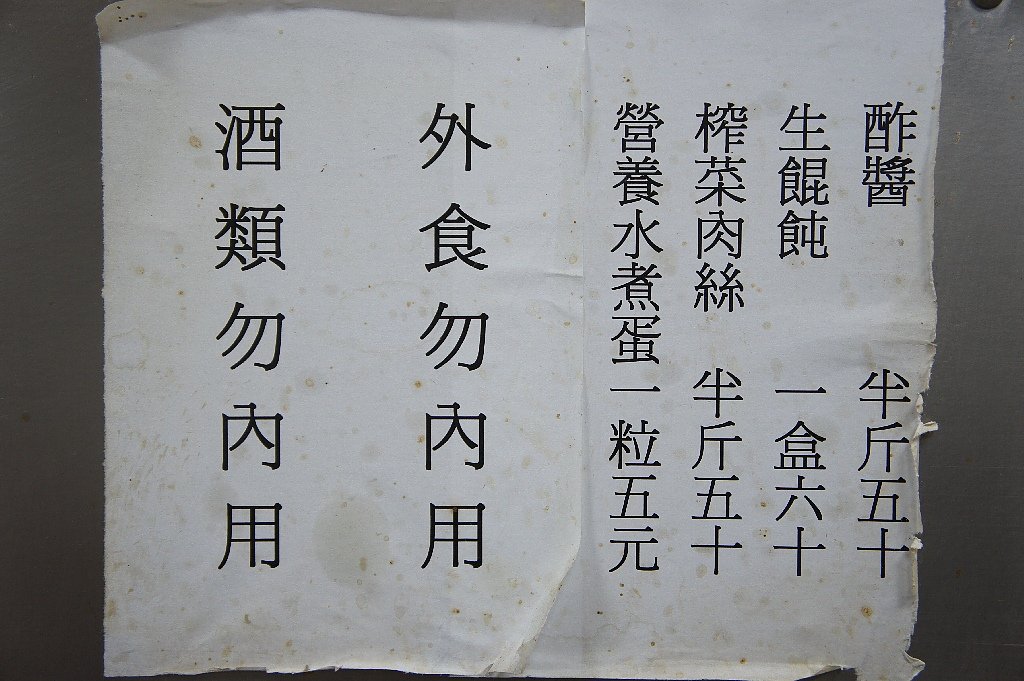 酢醬 半斤五十
生餛飩 一盒六十
榨菜肉絲 半斤五十
營養水煮蛋一粒五元
外食勿內用
酒類勿內用